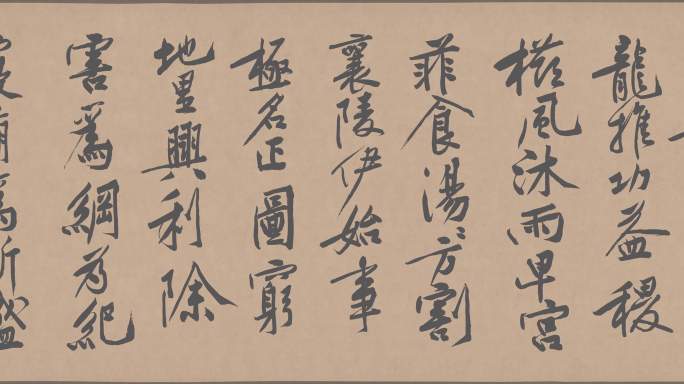 龍推功益稷
櫛風沐雨卑宮
菲食湯〻方割
襄陵伊始事
極名正圖窮
地里興利除
害爲綱爲紀